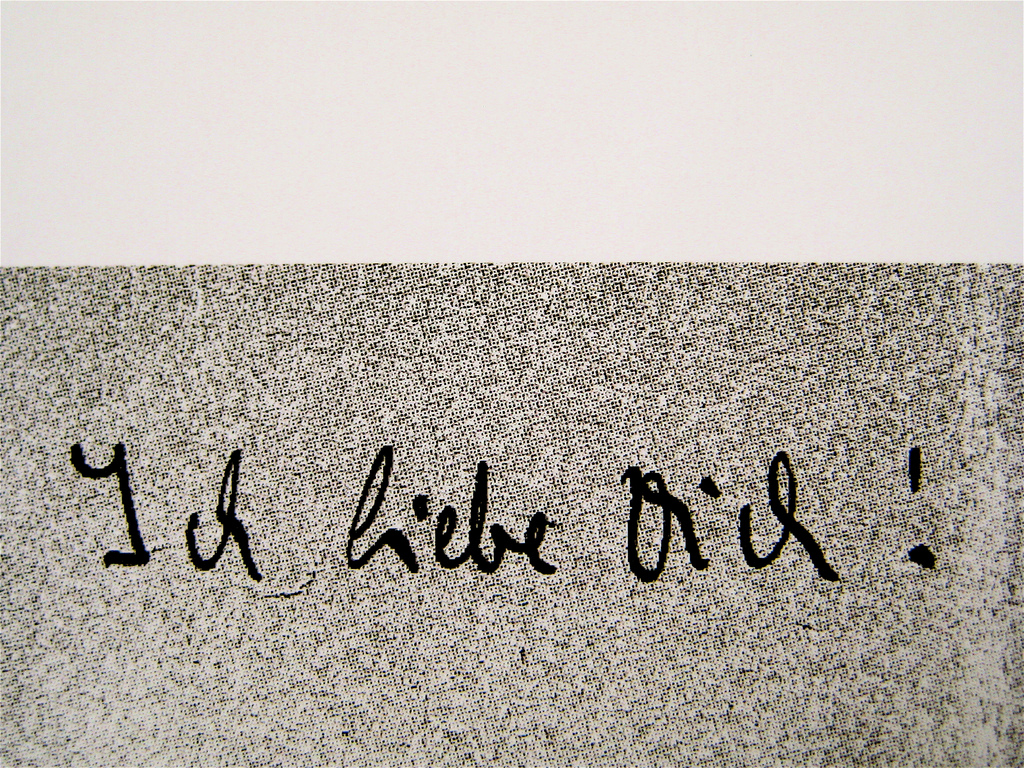 Ich liebe Dich!